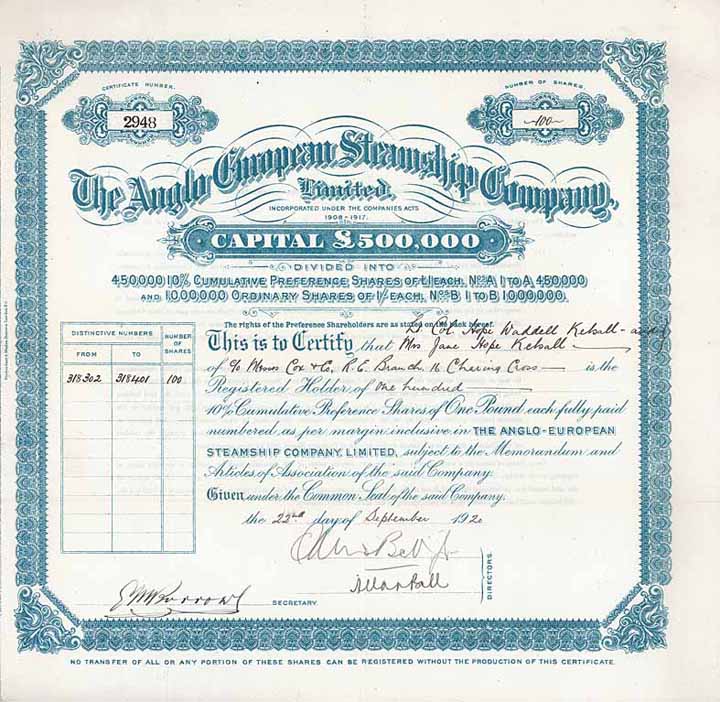 CERTIFICATE NUMBER.
2948
NUMBER OF SHARES.
100
The Anglo European Steamship Company,
Limited.
INCORPORATED UNDER THE COMPANIES ACTS
1908-1917.
CAPITAL £500,000
DIVIDED INTO
450,000 10% CUMULATIVE PREFERENCE SHARES OF £1 EACH, Nos A 1 TO A 450,000
AND 1,000,000 ORDINARY SHARES OF 1/- EACH, Nos B 1 TO B 1,000,000.
The rights of the Preference Shareholders are as stated on the back hereof.
DISTINCTIVE NUMBERS
NUMBER OF SHARES
FROM
TO
318302 318401 100
Lt Col. Hope Waddell Kelsall and
This is to Certify that Mrs Jane Hope Kelsall
of c/o Messrs Cox & Co, R.E. Branch 16 Charing Cross is the
Registered Holder of One hundred
10% Cumulative Preference Shares of One Pound each fully paid
numbered as per margin inclusive in THE ANGLO-EUROPEAN
STEAMSHIP COMPANY, LIMITED, subject to the Memorandum and
Articles of Association of the said Company.
Given under the Common Seal of the said Company,
the 22nd day of September 1920
DIRECTORS.
SECRETARY.
NO TRANSFER OF ALL OR ANY PORTION OF THESE SHARES CAN BE REGISTERED WITHOUT THE PRODUCTION OF THIS CERTIFICATE.